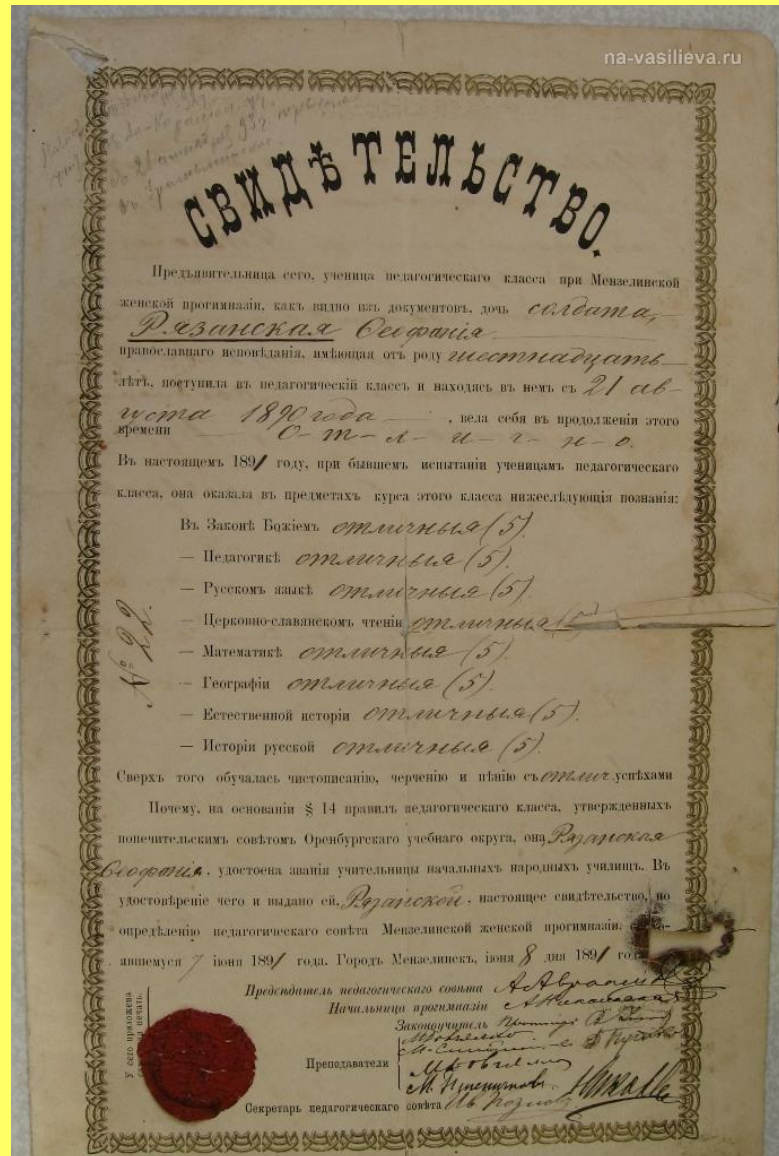 na-vasilieva.ru
СВИДѢТЕЛЬСТВО.
Предъявительница сего, ученица педагогическаго класса при Мензелинской
женской прогимназіи, какъ видно изъ документовъ, дочь солдата,
Рязанская Ѳеофанія
православнаго исповѣданія, имѣющая отъ роду шестнадцать
лѣтъ, поступила въ педагогическій классъ и находясь въ немъ съ 21 ав-
густа 1890 года, вела себя въ продолженіи этого
времени О-т-л-и-ч-н-о.
Въ настоящемъ 1891 году, при бывшемъ испытаніи ученицамъ педагогическаго
класса, она оказала въ предметахъ курса этого класса нижеслѣдующія познанія:
Въ Законѣ Божіемъ отличныя (5).
— Педагогикѣ отличныя (5).
— Русскомъ языкѣ отличныя (5).
— Церковно-славянскомъ чтеніи отличныя (5)
— Математикѣ отличныя (5).
— Географіи отличныя (5).
— Естественной исторіи отличныя (5).
— Исторіи русской отличныя (5).
№ 22.
Сверхъ того обучалась чистописанію, черченію и пѣнію съ отлич. успѣхами
Почему, на основаніи § 14 правилъ педагогическаго класса, утвержденныхъ
попечительскимъ совѣтомъ Оренбургскаго учебнаго округа, она, Рязанская
Ѳеофанія, удостоена званія учительницы начальныхъ народныхъ училищъ. Въ
удостовѣреніе чего и выдано ей, Рязанской, настоящее свидѣтельство, по
опредѣленію педагогическаго совѣта Мензелинской женской прогимназіи,
явшемуся 7 іюня 1891 года. Городъ Мензелинскъ, іюня 8 дня 1891 год
Предсѣдатель педагогическаго совѣта
Начальница прогимназіи
Законоучитель
Преподаватели
Секретарь педагогическаго совѣта
У сего приложена
печать.